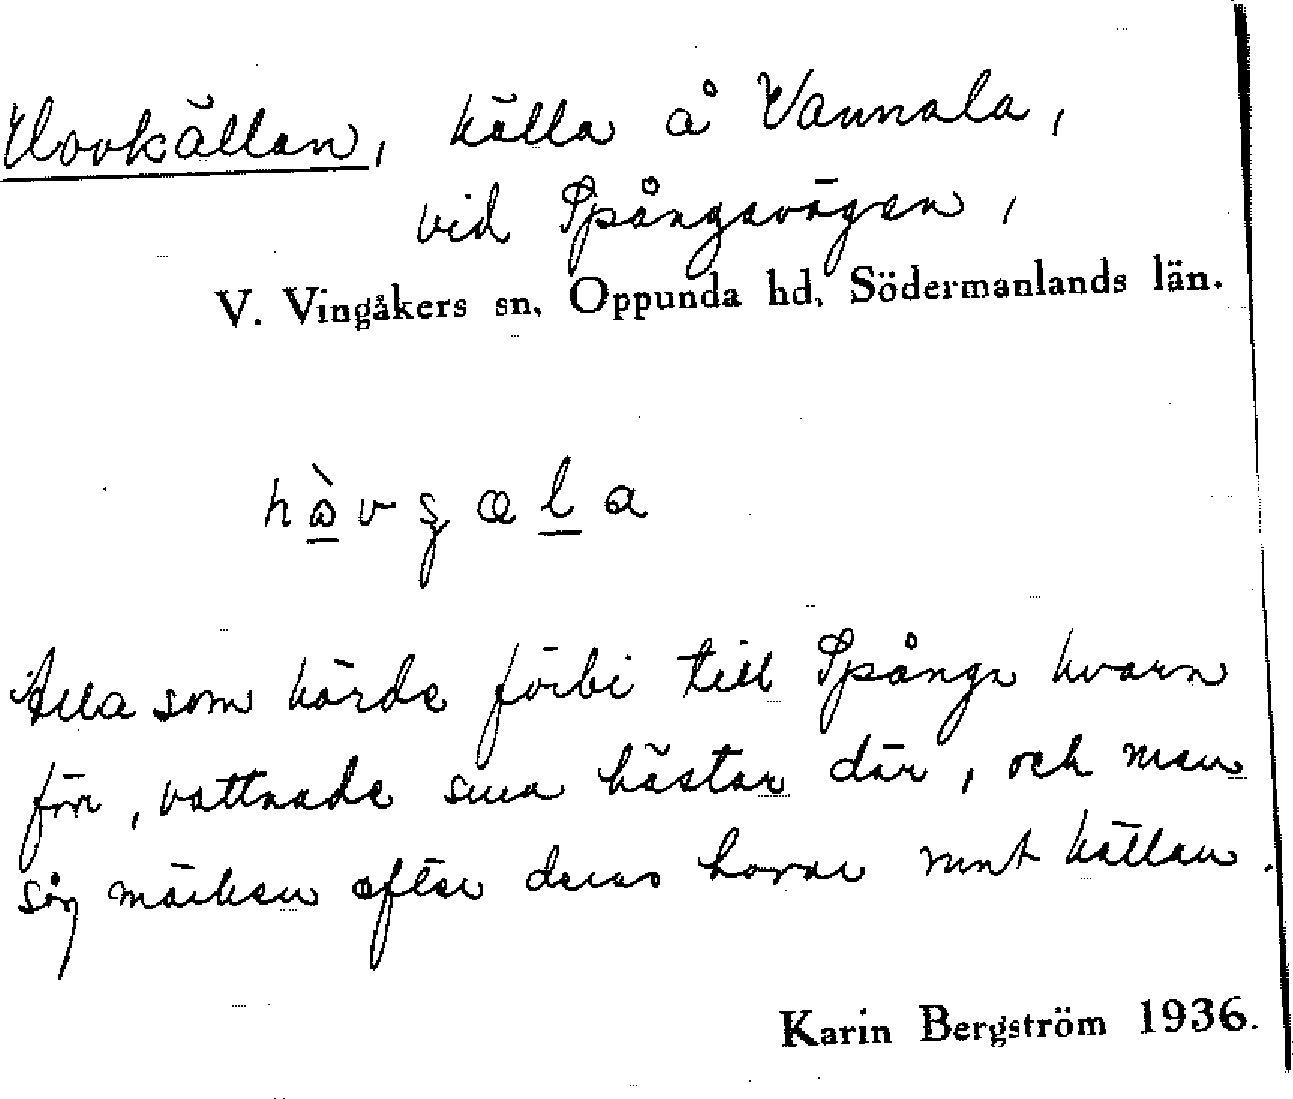 Hovkällan, källa å Vannala,
vid Spångavägen,
V. Vingåkers sn, Oppunda hd, Södermanlands län.
hàvȿæla
Alla som körde förbi till Spånga kvarn
förr, vattnade sina hästar där, och man
såg märken efter deras hovar runt källan.
Karin Bergström 1936.